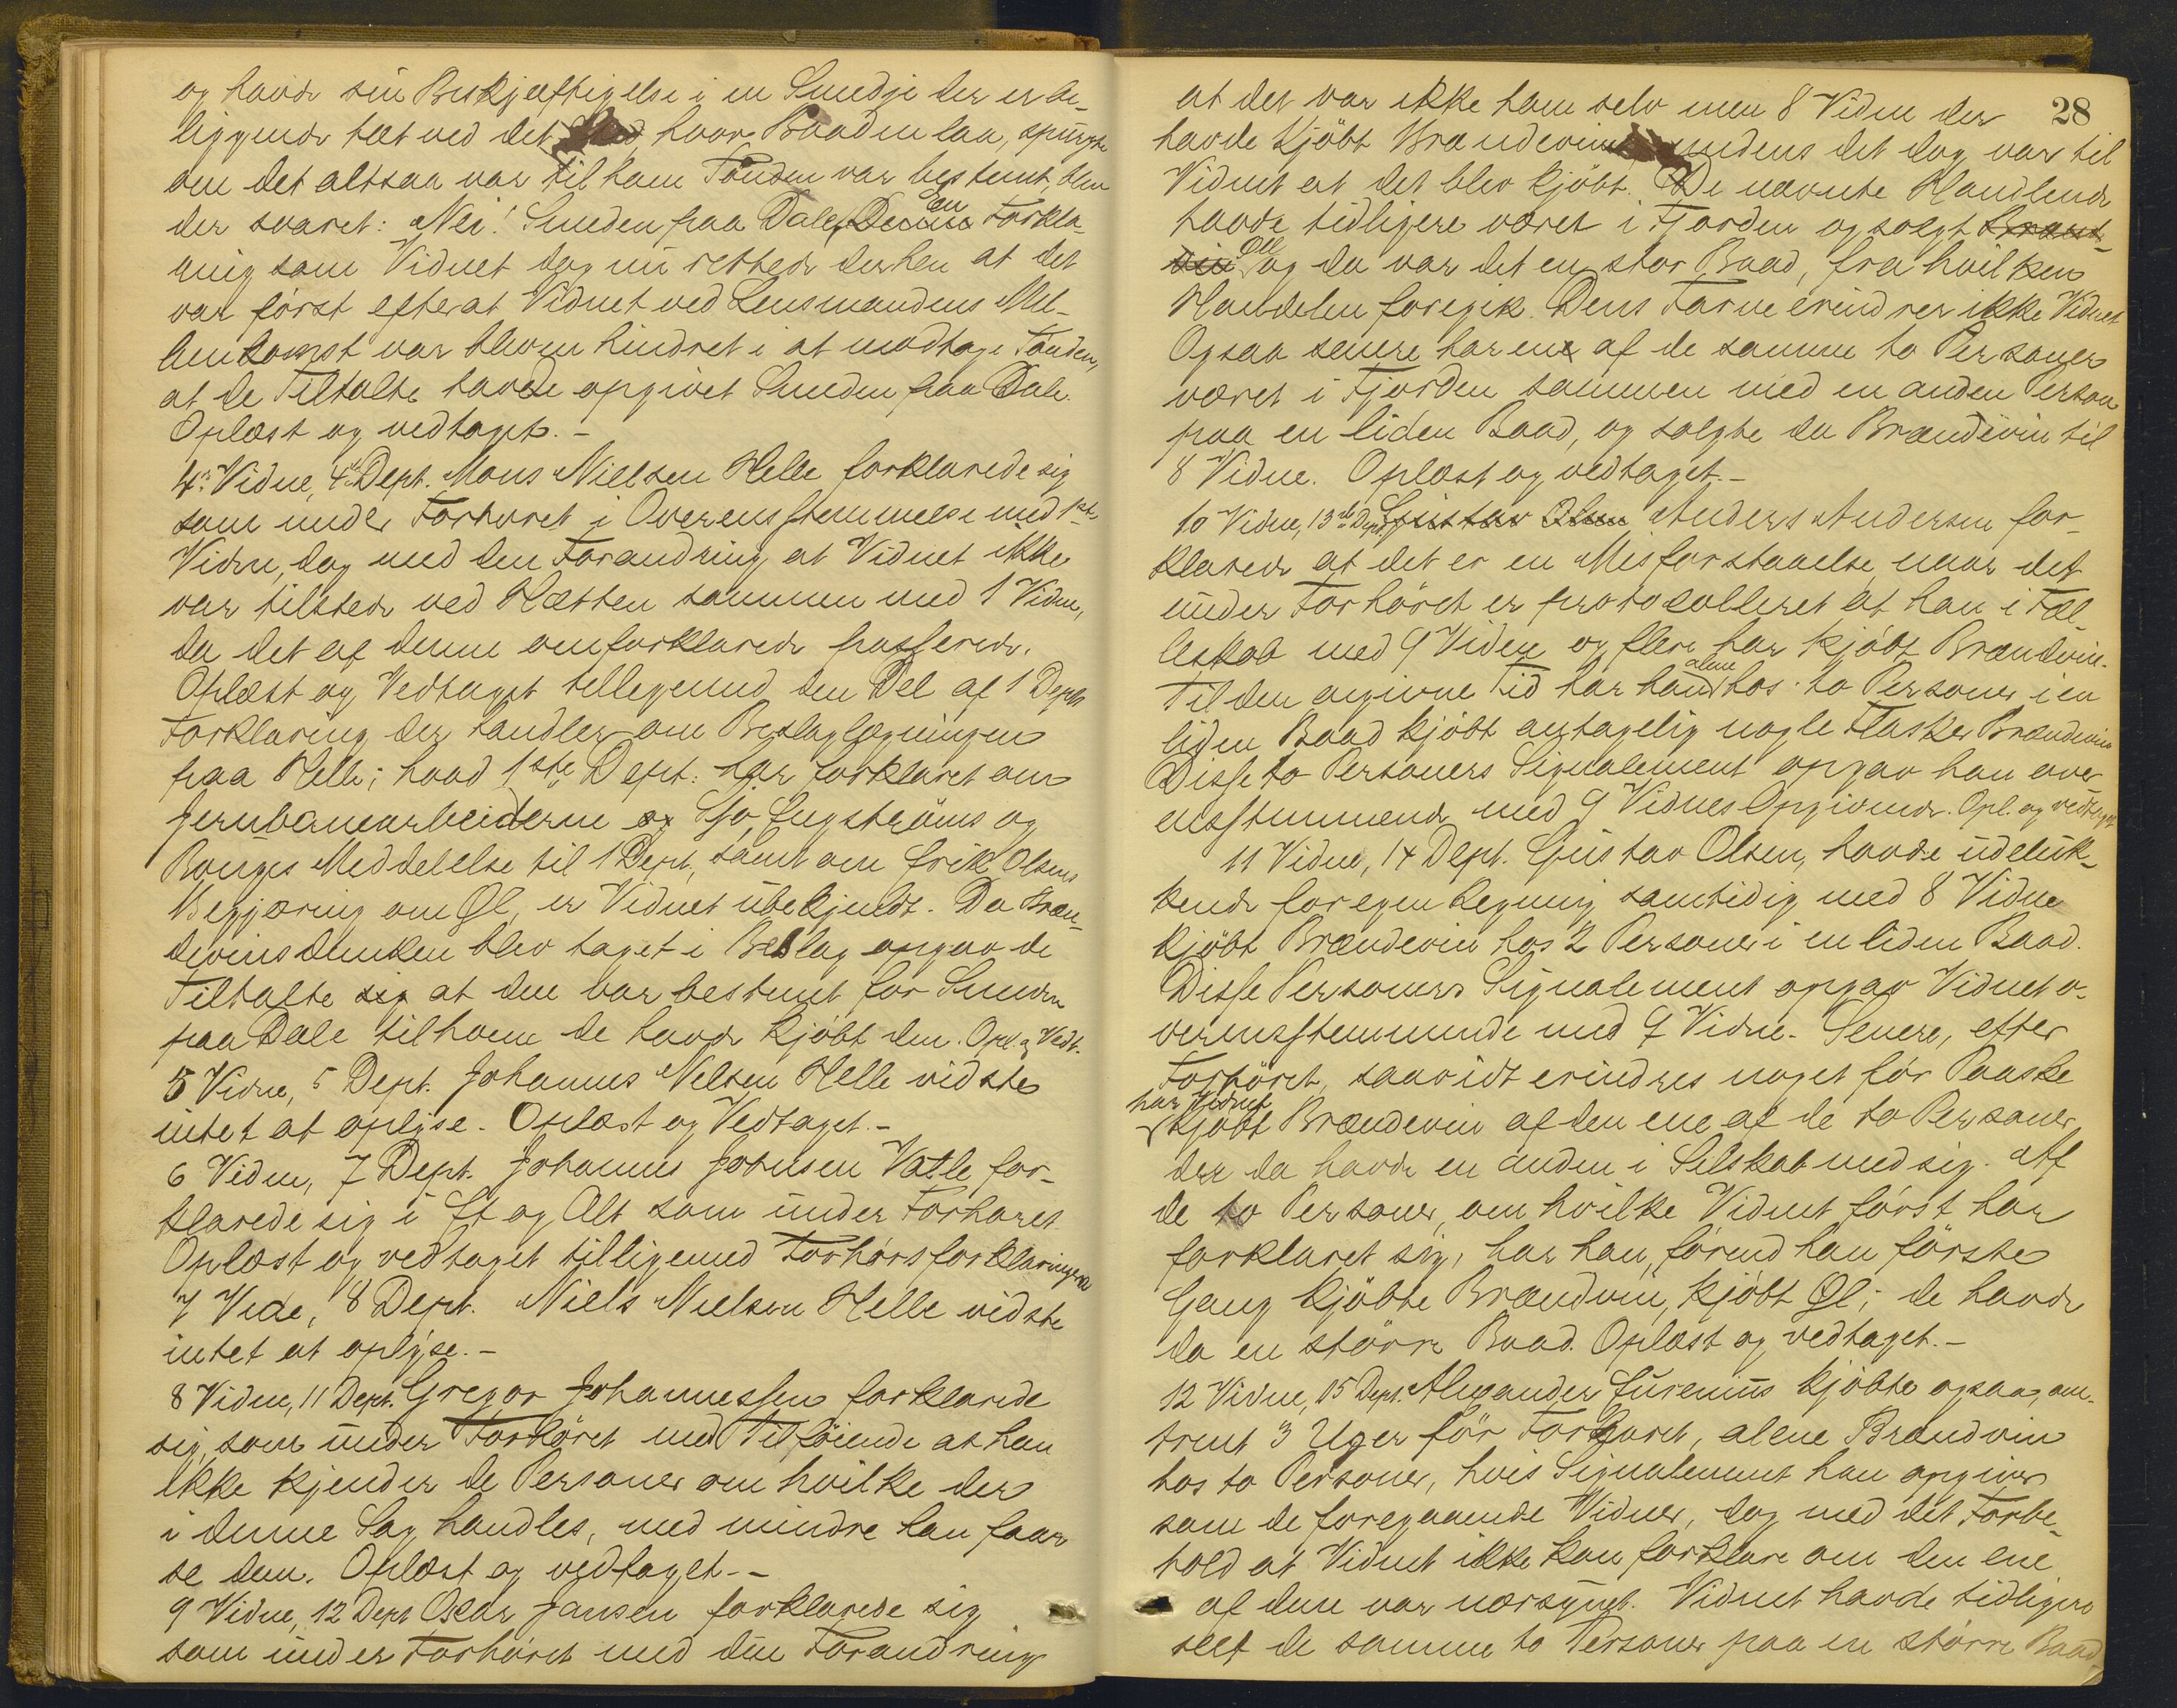 og havde sin Beskjæftigelse i en Smedje der er be-
liggende tæt ved det Sted, hvor Baaden laa, spurgte
om det altsaa var til ham Tønden var bestemt, blev
der svaret: Nei! Smeden paa Dale, Denne en Forkla-
ring som Vidnet dog nu rettede derhen at det
var först efterat Vidnet ved Lensmandens Mel-
lemkomst var bleven hindret i at modtage Tönden,
at de Tiltalte havde opgivet Smeden paa Dale.
Oplæst og vedtaget. -
4de Vidne, 4de Dept. Mons Nielsen Helle forklarede sig
som under Forhöret i Overensstemmelse med 1ste
Vidne, dog med den Forandring at Vidnet ikke
var tilstede ved Hætten sammen med 1 Vidne,
da det af denne omforklarede passerede.
Oplæst og Vedtaget tilligemed den Del af 1 Depts
Forklaring der handler om Beslaglægningen
paa Helle; hvad 1ste Dept. har forklaret om
Jernbanearbeiderne og Sjo, Engströms og
Bonges Meddelelse til 1 Dept, samt om Erik Olsens
Begjæring om Øl, er Vidnet ubekjendt. Da Bræn-
devinsdunken blev taget i Beslag opgav de
Tiltalte sig at den var bestemt for Smeden
paa Dale til hvem de havde kjöbt den. Opl. og Vedt.
5 Vidne, 5 Dept. Johannes Nelsen Helle vidste
intet at oplyse. Oplæst og Vedtaget. -
6 Vidne, 7 Dept. Johannes Johnsen Vatle for-
klarede sig i Et og Alt som under Forhöret
Oplæst og vedtaget tilligemed Forhörsforklaringen
7 Vide, 8 Dept. Niels Nielsen Helle vidste
intet at oplyse. -
8 Vidne, 11 Dept. Gregor Johannessen forklarede
sig som under Forhöret med Tilföiende at han
ikke kjender de Personer om hvilke der
i denne Sag handles, med mindre han faar
se dem. Oplæst og vedtaget. -
9 Vidne, 12 Dept Oscar Jansen forklarede sig
som under Forhöret med den Forandring
28
at det var ikke ham selv men 8 Vidne der
havde kjöbt Brændevinet, medens det dog var til
Vidnet at det blev kjöbt. De nævnte Handlende
havde tidligere været i Fjorden og solgt Brænde-
vin Öll og da var det en stor Baad, fra hvilken
Handelen foregik. Dens Farve erindrer ikke Vidnet
Ogsaa senere har en af de samme to Personer
været i Fjorden sammen med en anden Person
paa en liden Baad, og solgte da Brændevin til
8 Vidne. Oplæst og vedtaget. -
10 Vidne, 13de Dept. Gustav Olsen Anders Andersen for-
klarede at det er en Misforstaaelse naar det
under Forhöret er protocolleret at han i Fæl-
leskab med 9 Vidne og flere har kjöbt Brændevin.
Til den angivne Tid har han alene hos to Personer i en
liden Baad kjöbt antagelig nogle Flasker Brændevin
Disse to Personers Signalement opgav han over
ensstemmende med 9 Vidnes Opgivende. Opl. og vedtaget
11 Vidne, 14 Dept. Gustav Olsen, havde udeluk-
kende for egen Regning samtidig med 8 Vidne
kjöbt Brændevin hos 2 Personer i en liden Baad.
Disse Personers Signalement opgav Vidnet o-
verensstemmende med 9 Vidne. Senere, efter
Forhöret, saavidt erindres noget för Paaske
har Vidnet kjöbt Brændevin af den ene af de to Personer
der da havde en anden i Selskab med sig. Af
de to Personer, om hvilke Vidnet först har
forklaret sig, har han, förend han förste
Gang kjöbte Brændevin, kjöbt Øl; de havde
da en större Baad. Oplæst og vedtaget. -
12 Vidne, 15 Dept. Alexander Eurenius kjöbte ogsaa, om-
trent 3 Uger för Forhöret, alene Brændevin
hos to Personer, hvis Signalement han opgives
som de foregaaende Vidner, dog med det Forbe-
hold at Vidnet ikke kan forklare om den ene
af dem var nærsynet. Vidnet havde tidligere
seet de samme to Personer paa en större Baad